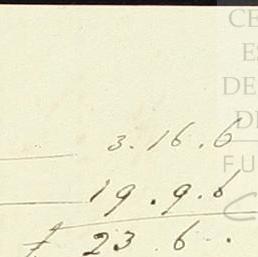 CE
E
DE
D
3.16.6
FU
19.9.6
£ 23 6 .